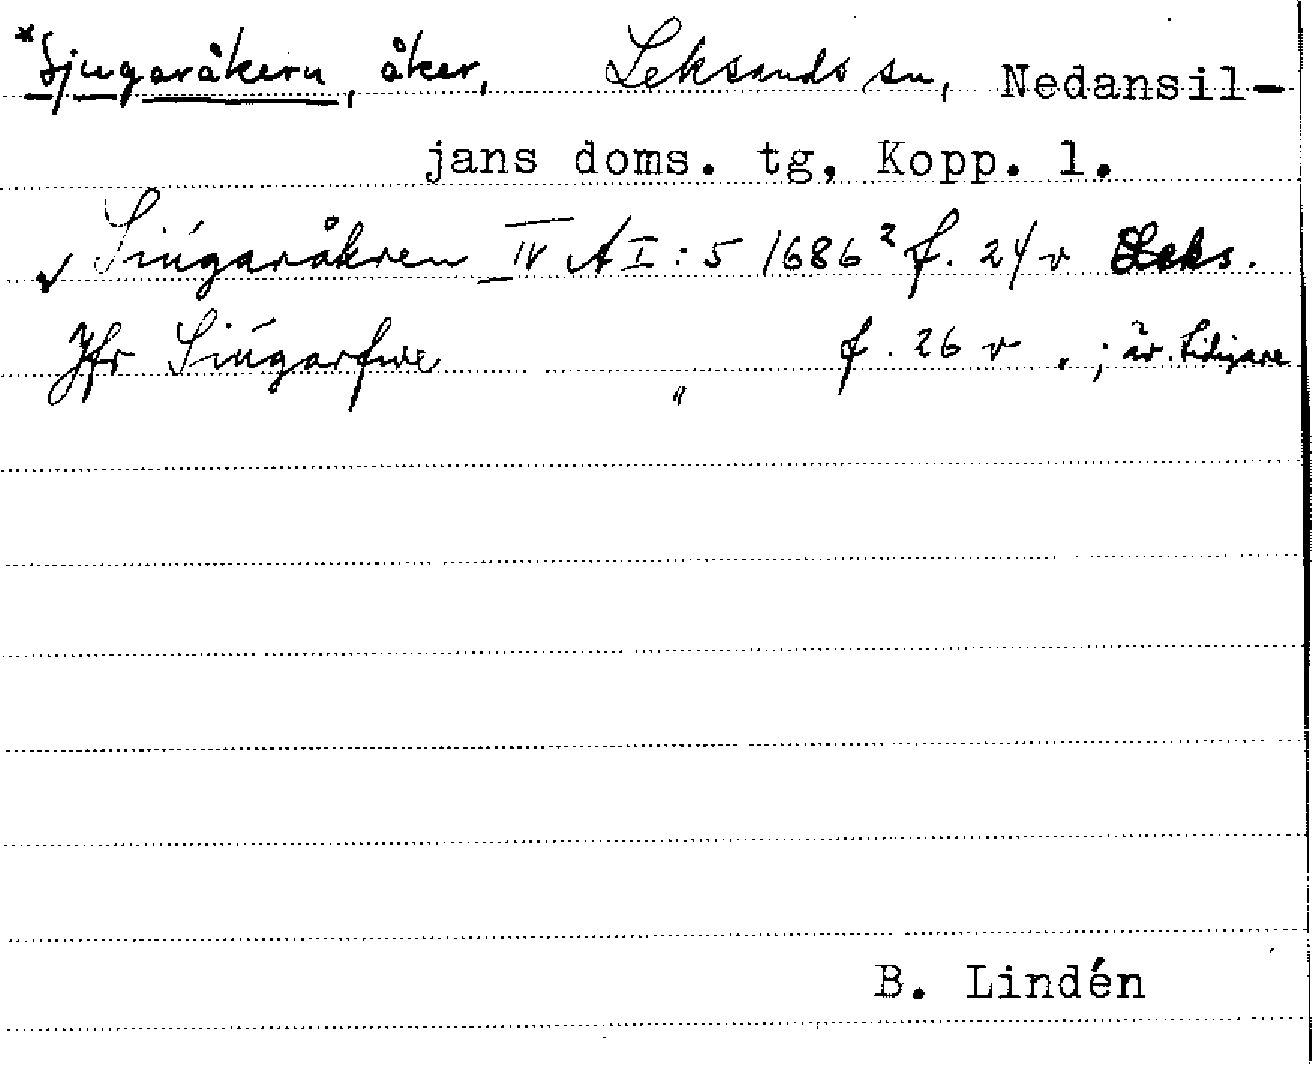 *Sjugaråkern, åker, Leksands sn, Nedansil-
jans doms. tg, Kopp. l.
√ Siúgaråkren IV A I:5 1686² f. 24 v Leks.
Jfr Siúgarfwe " f. 26 v . ; äv. tidigare
B. Lindén